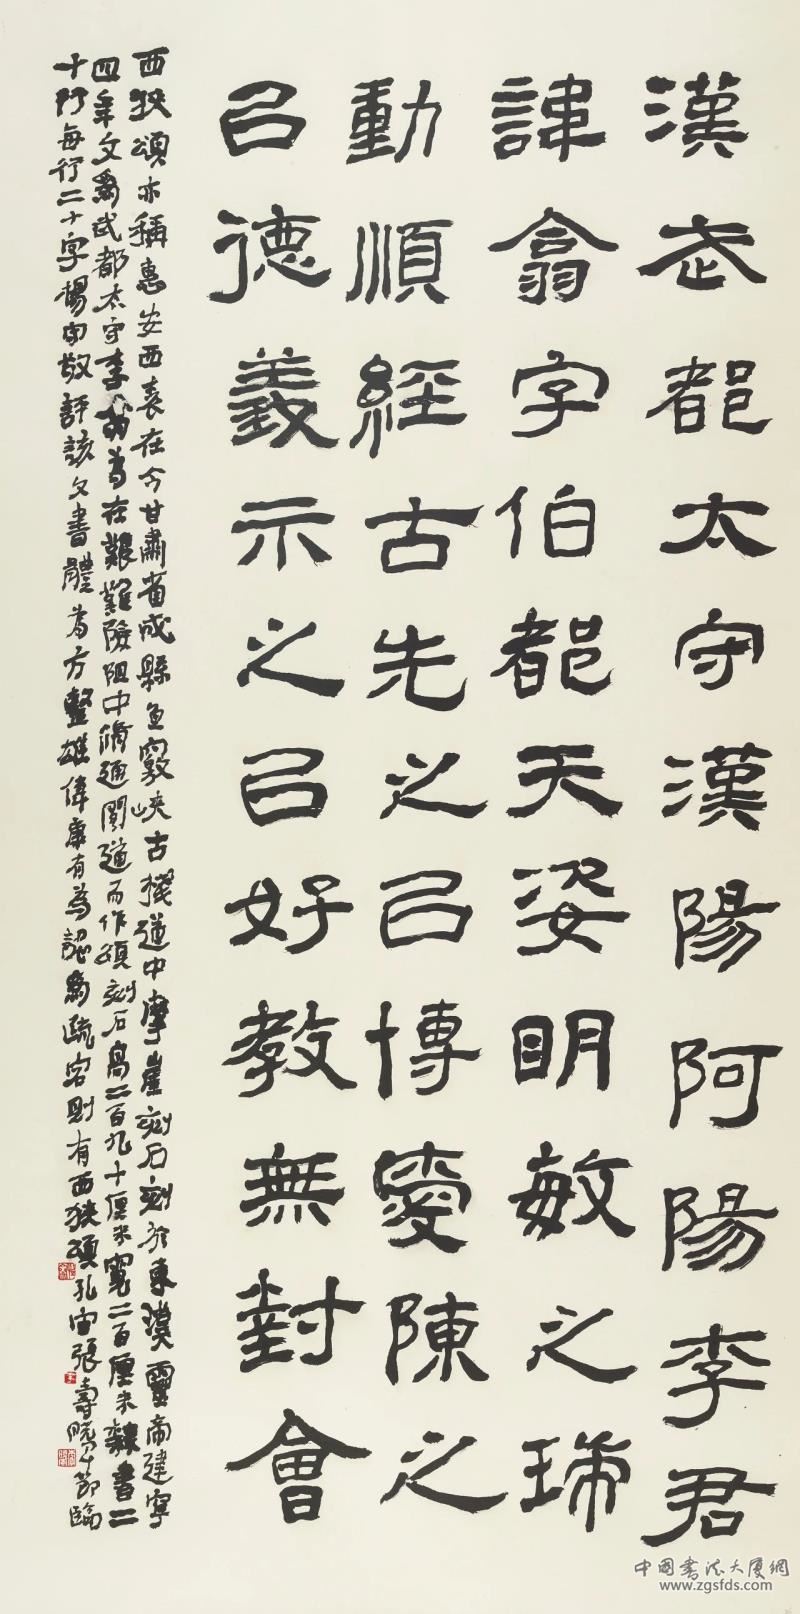 漢武都太守漢陽阿陽李君
諱翕字伯都天姿明敏之瑞
動順經古先之㠯博愛陳之
㠯德義示之㠯好教無對會
西狹頌亦稱惠安西表在今甘肅省成縣魚竅峽古棧道中摩崖刻石刻於東漢靈帝建寧
四年文爲武都太守李翕為在艱難險阻中脩通閣道而作頌刻石高二百九十厘米寬二百厘米隸書二
十行每行二十字楊守敬評該文書體為方整雄偉康有為認爲疏宕則有西狹頌孔宙張壽節臨
中國書法大廈網
www.zgsfds.com